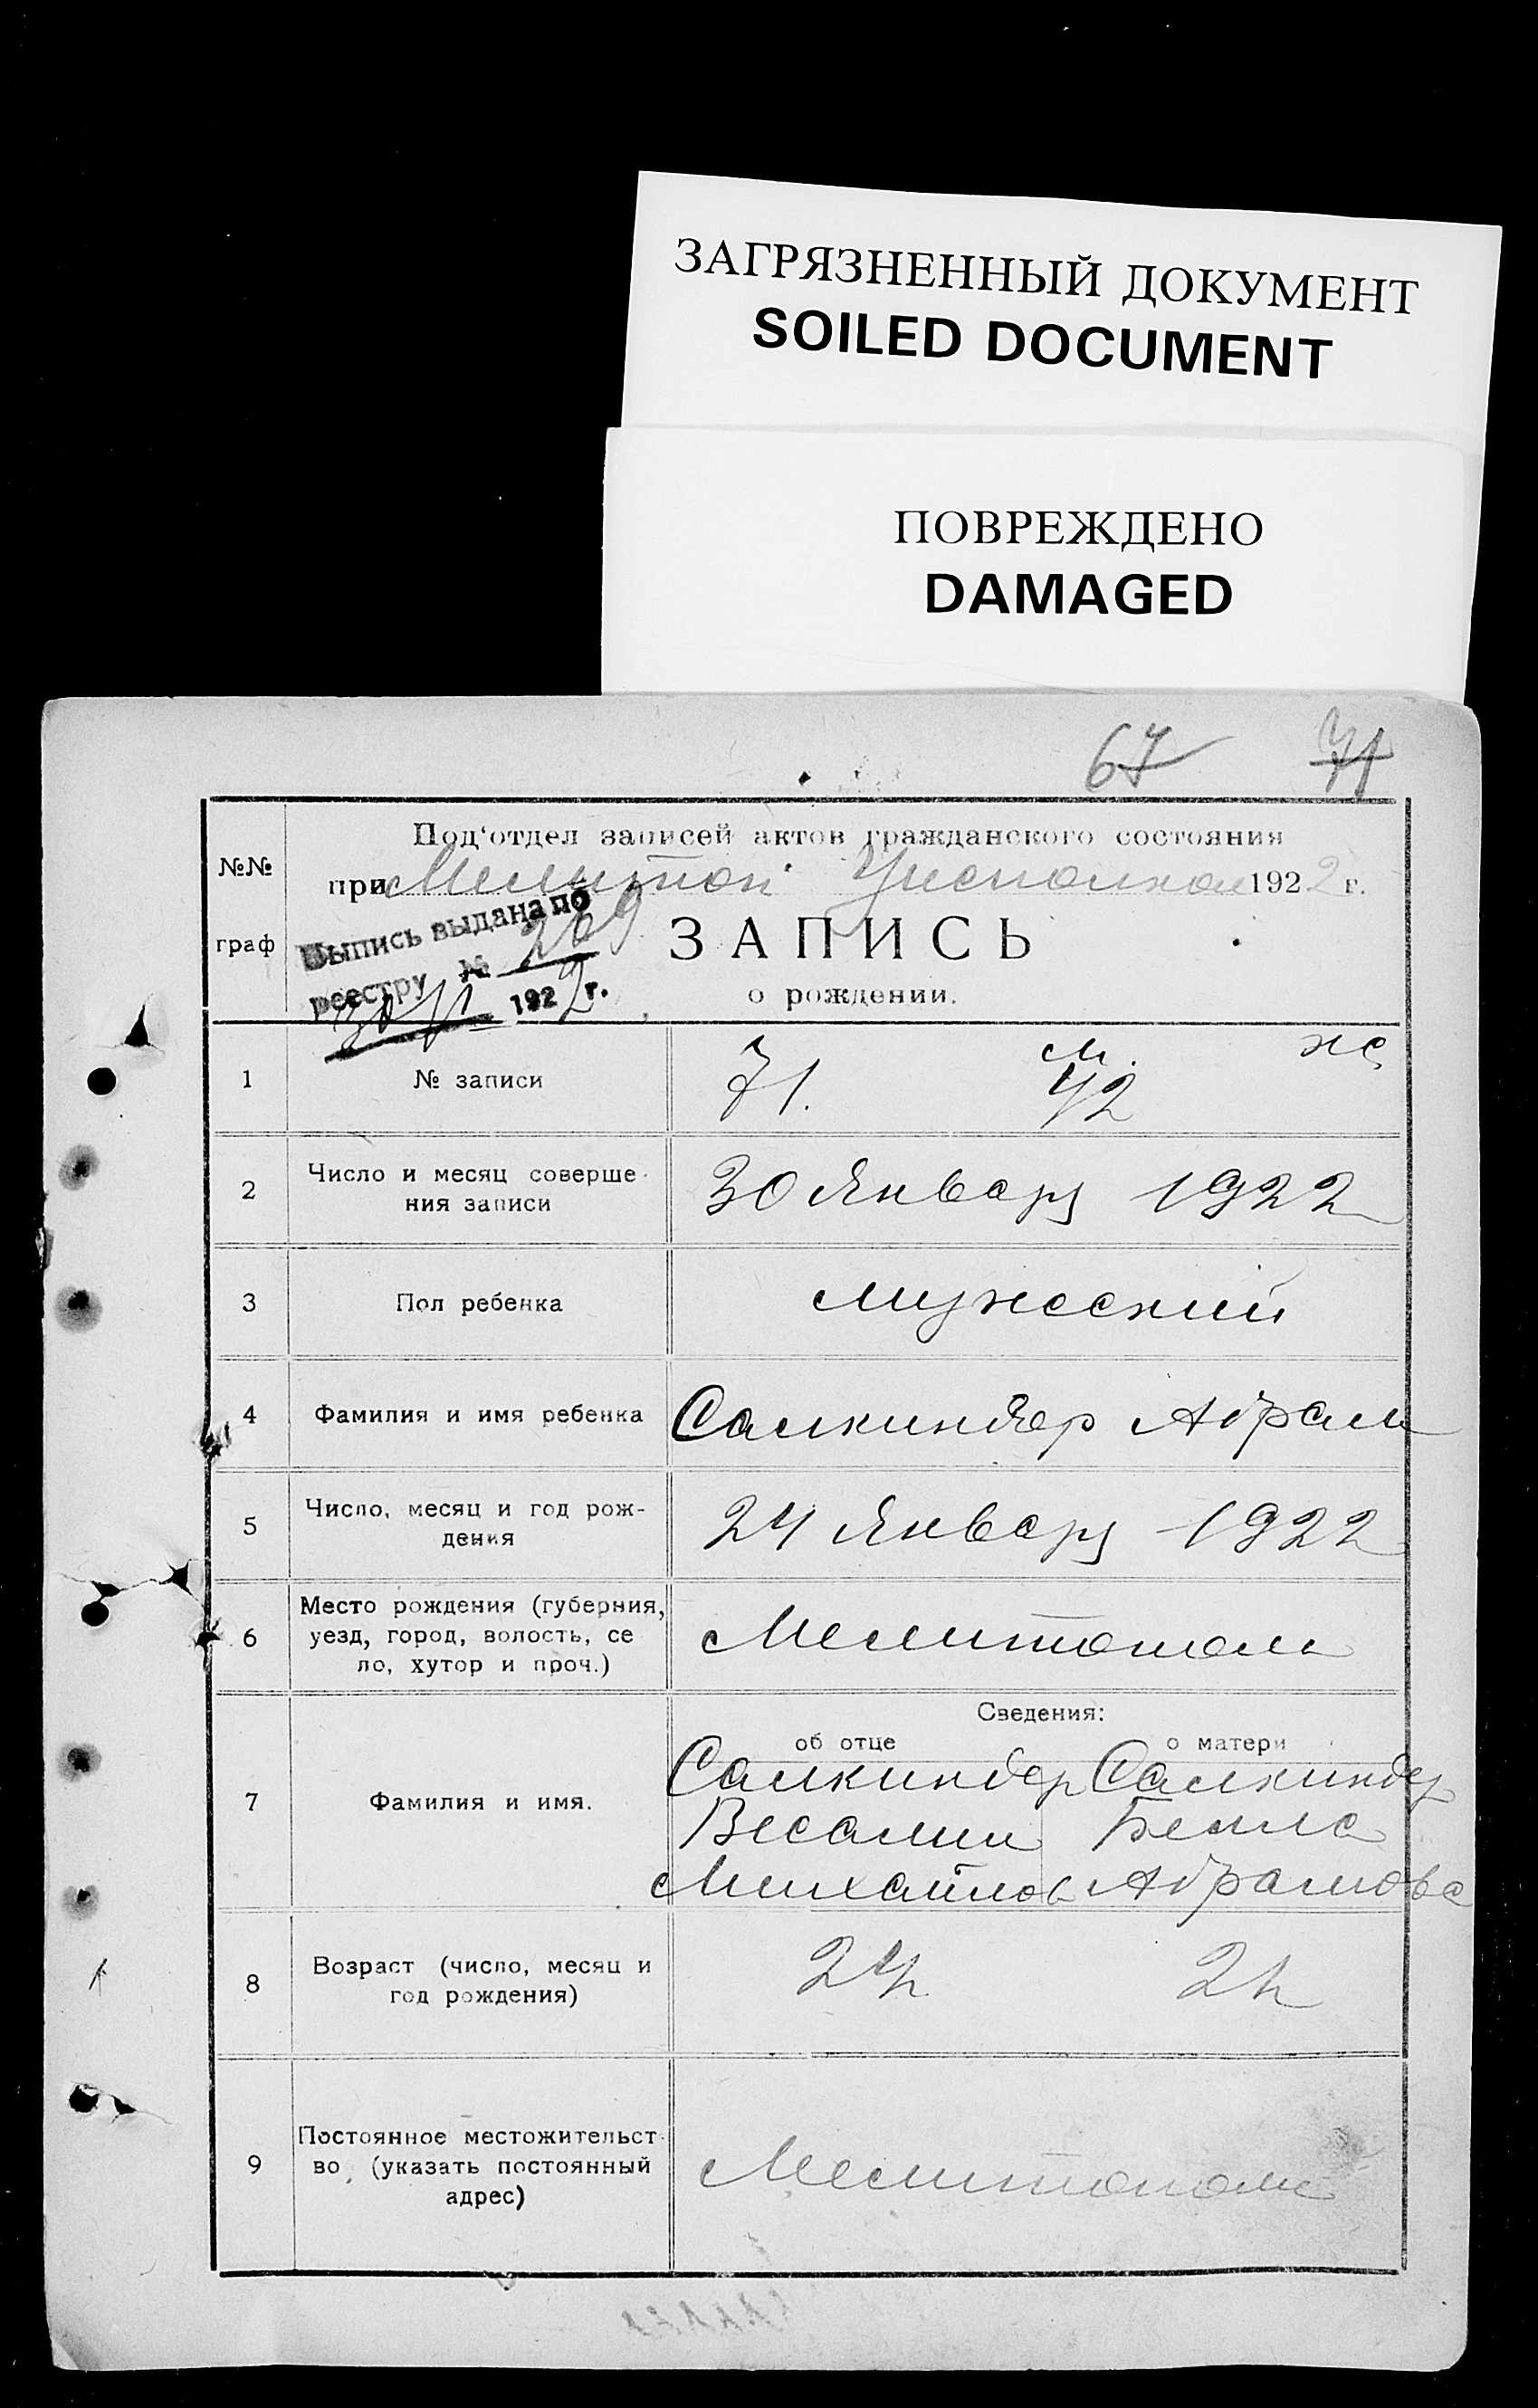 ЗАГРЯЗНЕННЫЙ ДОКУМЕНТ
SOILED DOCUMENT
ПОВРЕЖДЕНО
DAMAGED
67 71
№№ граф
Под'отдел записей актов гражданского состояния
при Мелитоп Уисполком 1922 г.
Выпись выдана по
реестру № 269
1922 г.
ЗАПИСЬ
о рождении.
1 № записи 71. м. 42 ж
2 Число и месяц соверше-
ния записи
30 Января 1922
3 Пол ребенка мужеский
4 Фамилия и имя ребенка Салкиндер Абрам
5 Число, месяц и год рож-
дения
24 Января 1922
6 Место рождения (губерния,
уезд, город, волость, се
ло, хутор и проч.)
Мелитополь
Сведения:
об отце о матери
7 Фамилия и имя.
Салкиндер Салкиндер
Весалии Бейла
Михайлов Абрамова
8 Возраст (число, месяц и
год рождения)
9 Постоянное местожительст-
во (указать постоянный
адрес)
Мелитополь